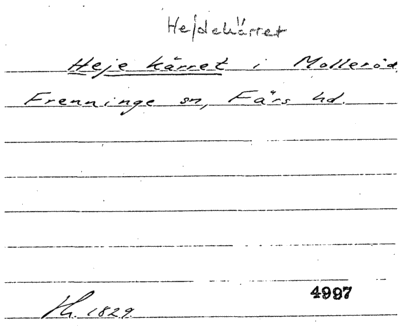 Hejdekärret
Heje kärret i Molleröd
Frenninge sn, Färs hd.
4997
1829.